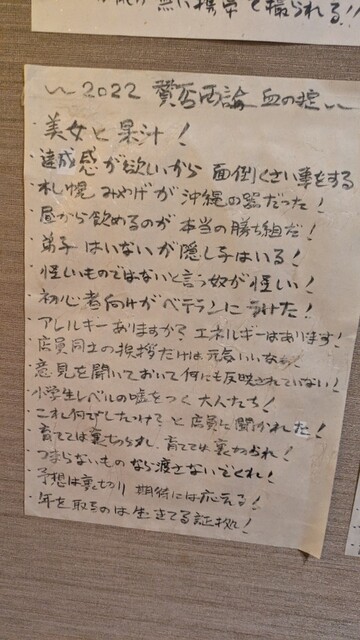 無い携帯で撮られる!!
～2022 賛否両論 血の掟～
・美女と果汁!
・達成感が欲しいから面倒くさい事をする
・札幌みやげが沖縄の器だった!
・昼から飲めるのが本当の勝ち組だ!
・弟子はいないが隠し子はいる!
・怪しいものではないと言う奴が怪しい!
・初心者向けがベテランにうけた!
・アレルギーありますか?エネルギーはあります!
・店員同士の挨拶だけは元気いいなぁ!
・意見を聞いておいて何にも反映されていない!
・小学生レベルの嘘をつく大人たち!
・これ何でしたっけ?と店員に聞かれた!
・育てては裏切られ、育てては裏切られ!
・つまらないものなら渡さないでくれ!
・予想は裏切り 期待には応える!
・年を取るのは生きてる証拠!